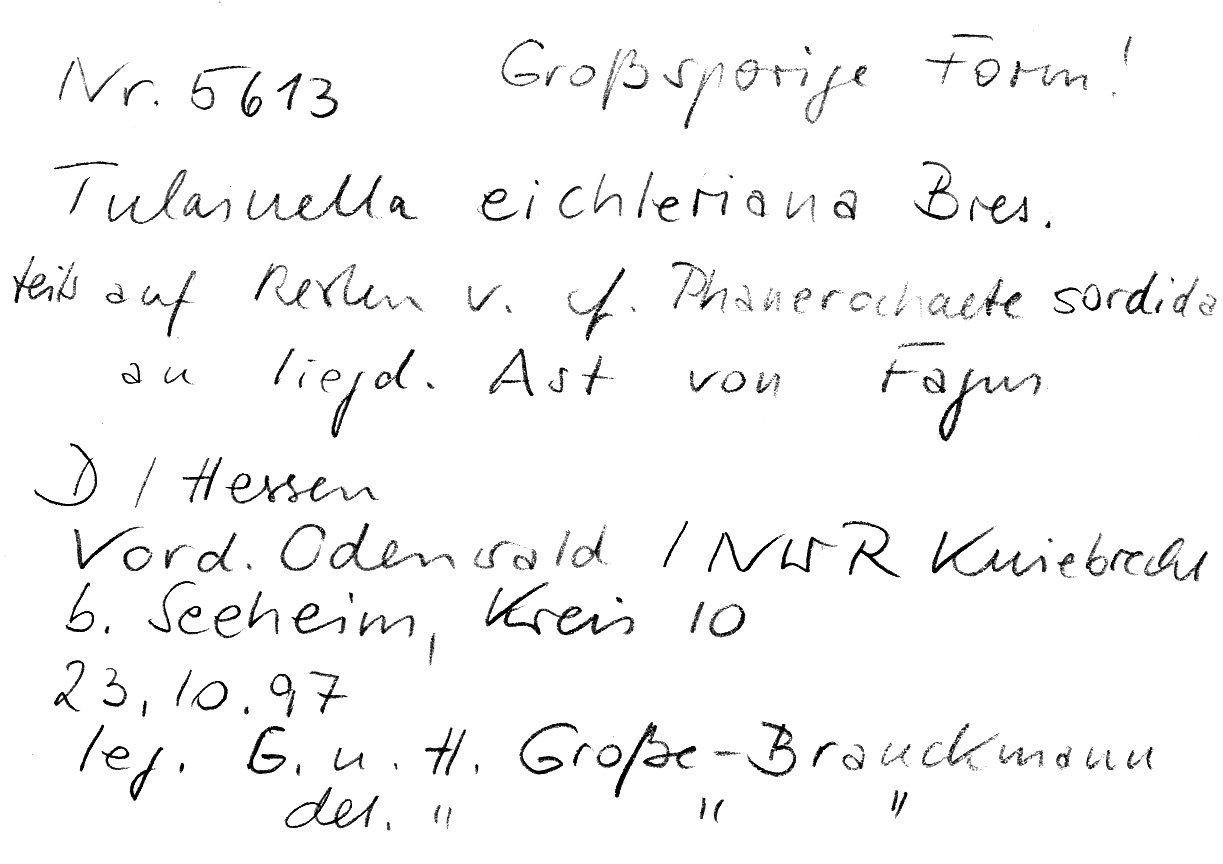 Nr. 5613 Großsporige Form!
Tulasnella eichleriana Bres.
teils auf Resten v. cf. Phanerochaete sordida
an liegd. Ast von Fagus
D / Hessen
Vord. Odenwald / NWR Kniebrecht
b. Seeheim, Kreis 10
23.10.97
leg. G. u. H. Große-Brauckmann
det. " " "